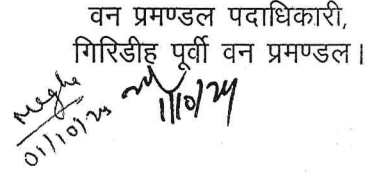 वन प्रमण्डल पदाधिकारी,
गिरिडीह पूर्वी वन प्रमण्डल।
Megha
01/10/24
1/10/24